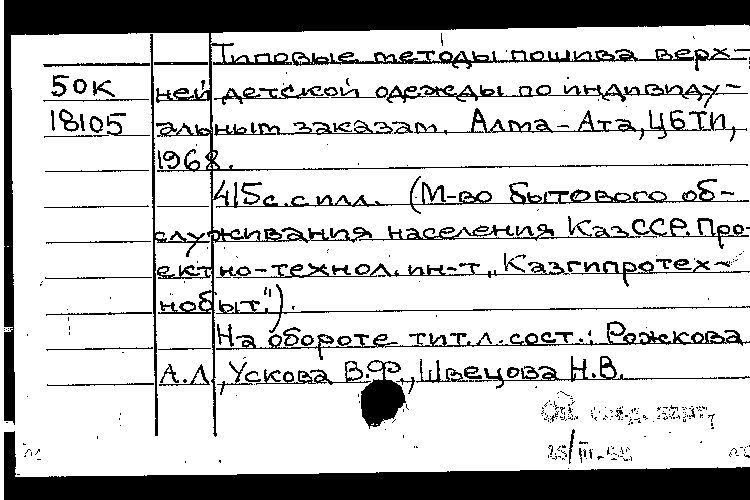 Типовые методы пошива верх-
50К ней детской одежды по индивиду-
18105 альным заказам. Алма-Ата, ЦБТИ,
1968.
415с. с илл. (М-во бытового об-
служивания населения КазССР. Про-
ектно-технол. ин-т „Казгипротех-
нобыт").
На обороте тит. л. сост.: Рожкова
А.Л., Ускова В.Ф., Швецова Н.В.